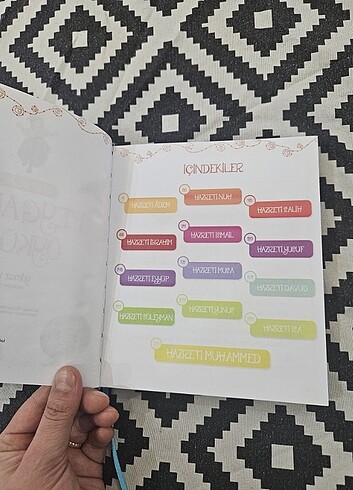 İÇİNDEKİLER
HAZRETİ ÂDEM
HAZRETİ NUH
HAZRETİ SALİH
HAZRETİ İBRAHİM
HAZRETİ İSMAİL
HAZRETİ YUSUF
HAZRETİ EYYÜP
HAZRETİ MUSA
HAZRETİ DAVUD
HAZRETİ SÜLEYMAN
HAZRETİ YUNUS
HAZRETİ İSA
HAZRETİ MUHAMMED